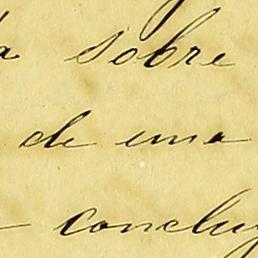 a sobre
de una
concluy